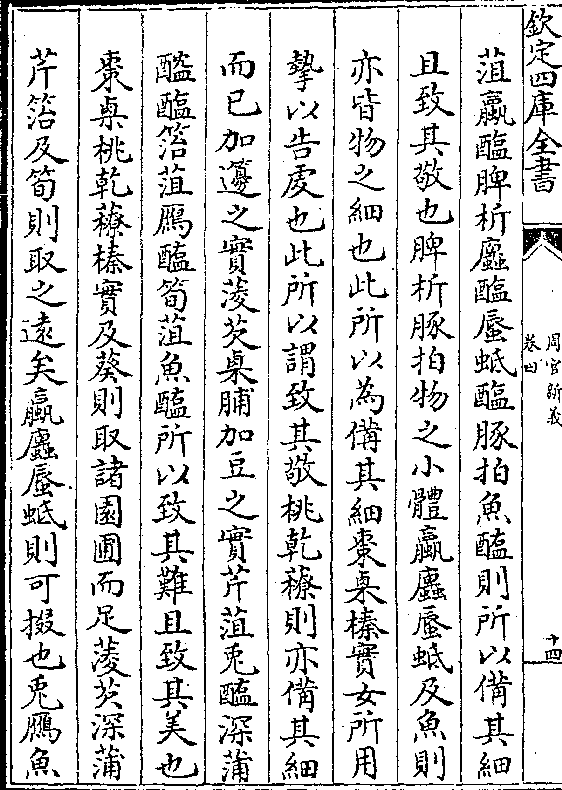 欽定四庫全書
周官新義
卷四
十四
菹蠃醢脾析蠯醢蜃蚳醢豚拍魚醢則所以備其細
且致其敬也脾析豚拍物之小體蠃蠯蜃蚳及魚則
亦皆物之細也此所以為備其細棗㮚榛實女所用
摯以告虔也此所以謂致其敬桃乾䕩則亦備其細
而已加籩之實蔆芡㮚脯加豆之實芹菹兎醢深蒲
醓醢箈菹鴈醢筍菹魚醢所以致其難且致其美也
棗㮚桃乾䕩榛實及葵則取諸園圃而足蔆芡深蒲
芹箈及筍則取之逺矣蠃蠯蜃蚳則可掇也兎鴈魚